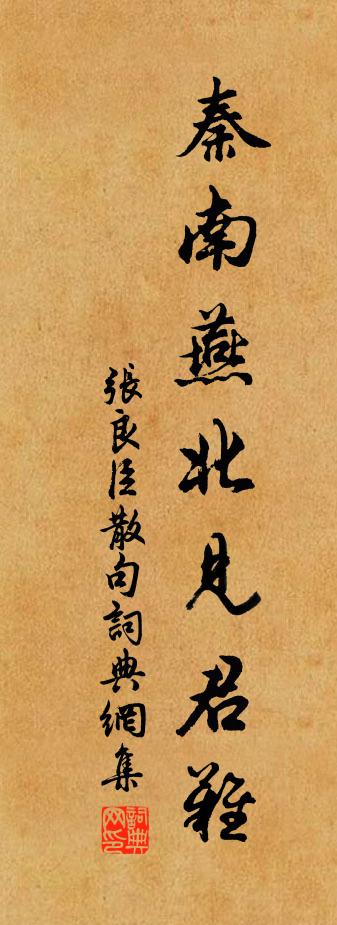 秦南燕北見君難
張良臣散句詞典網集
詞典网印